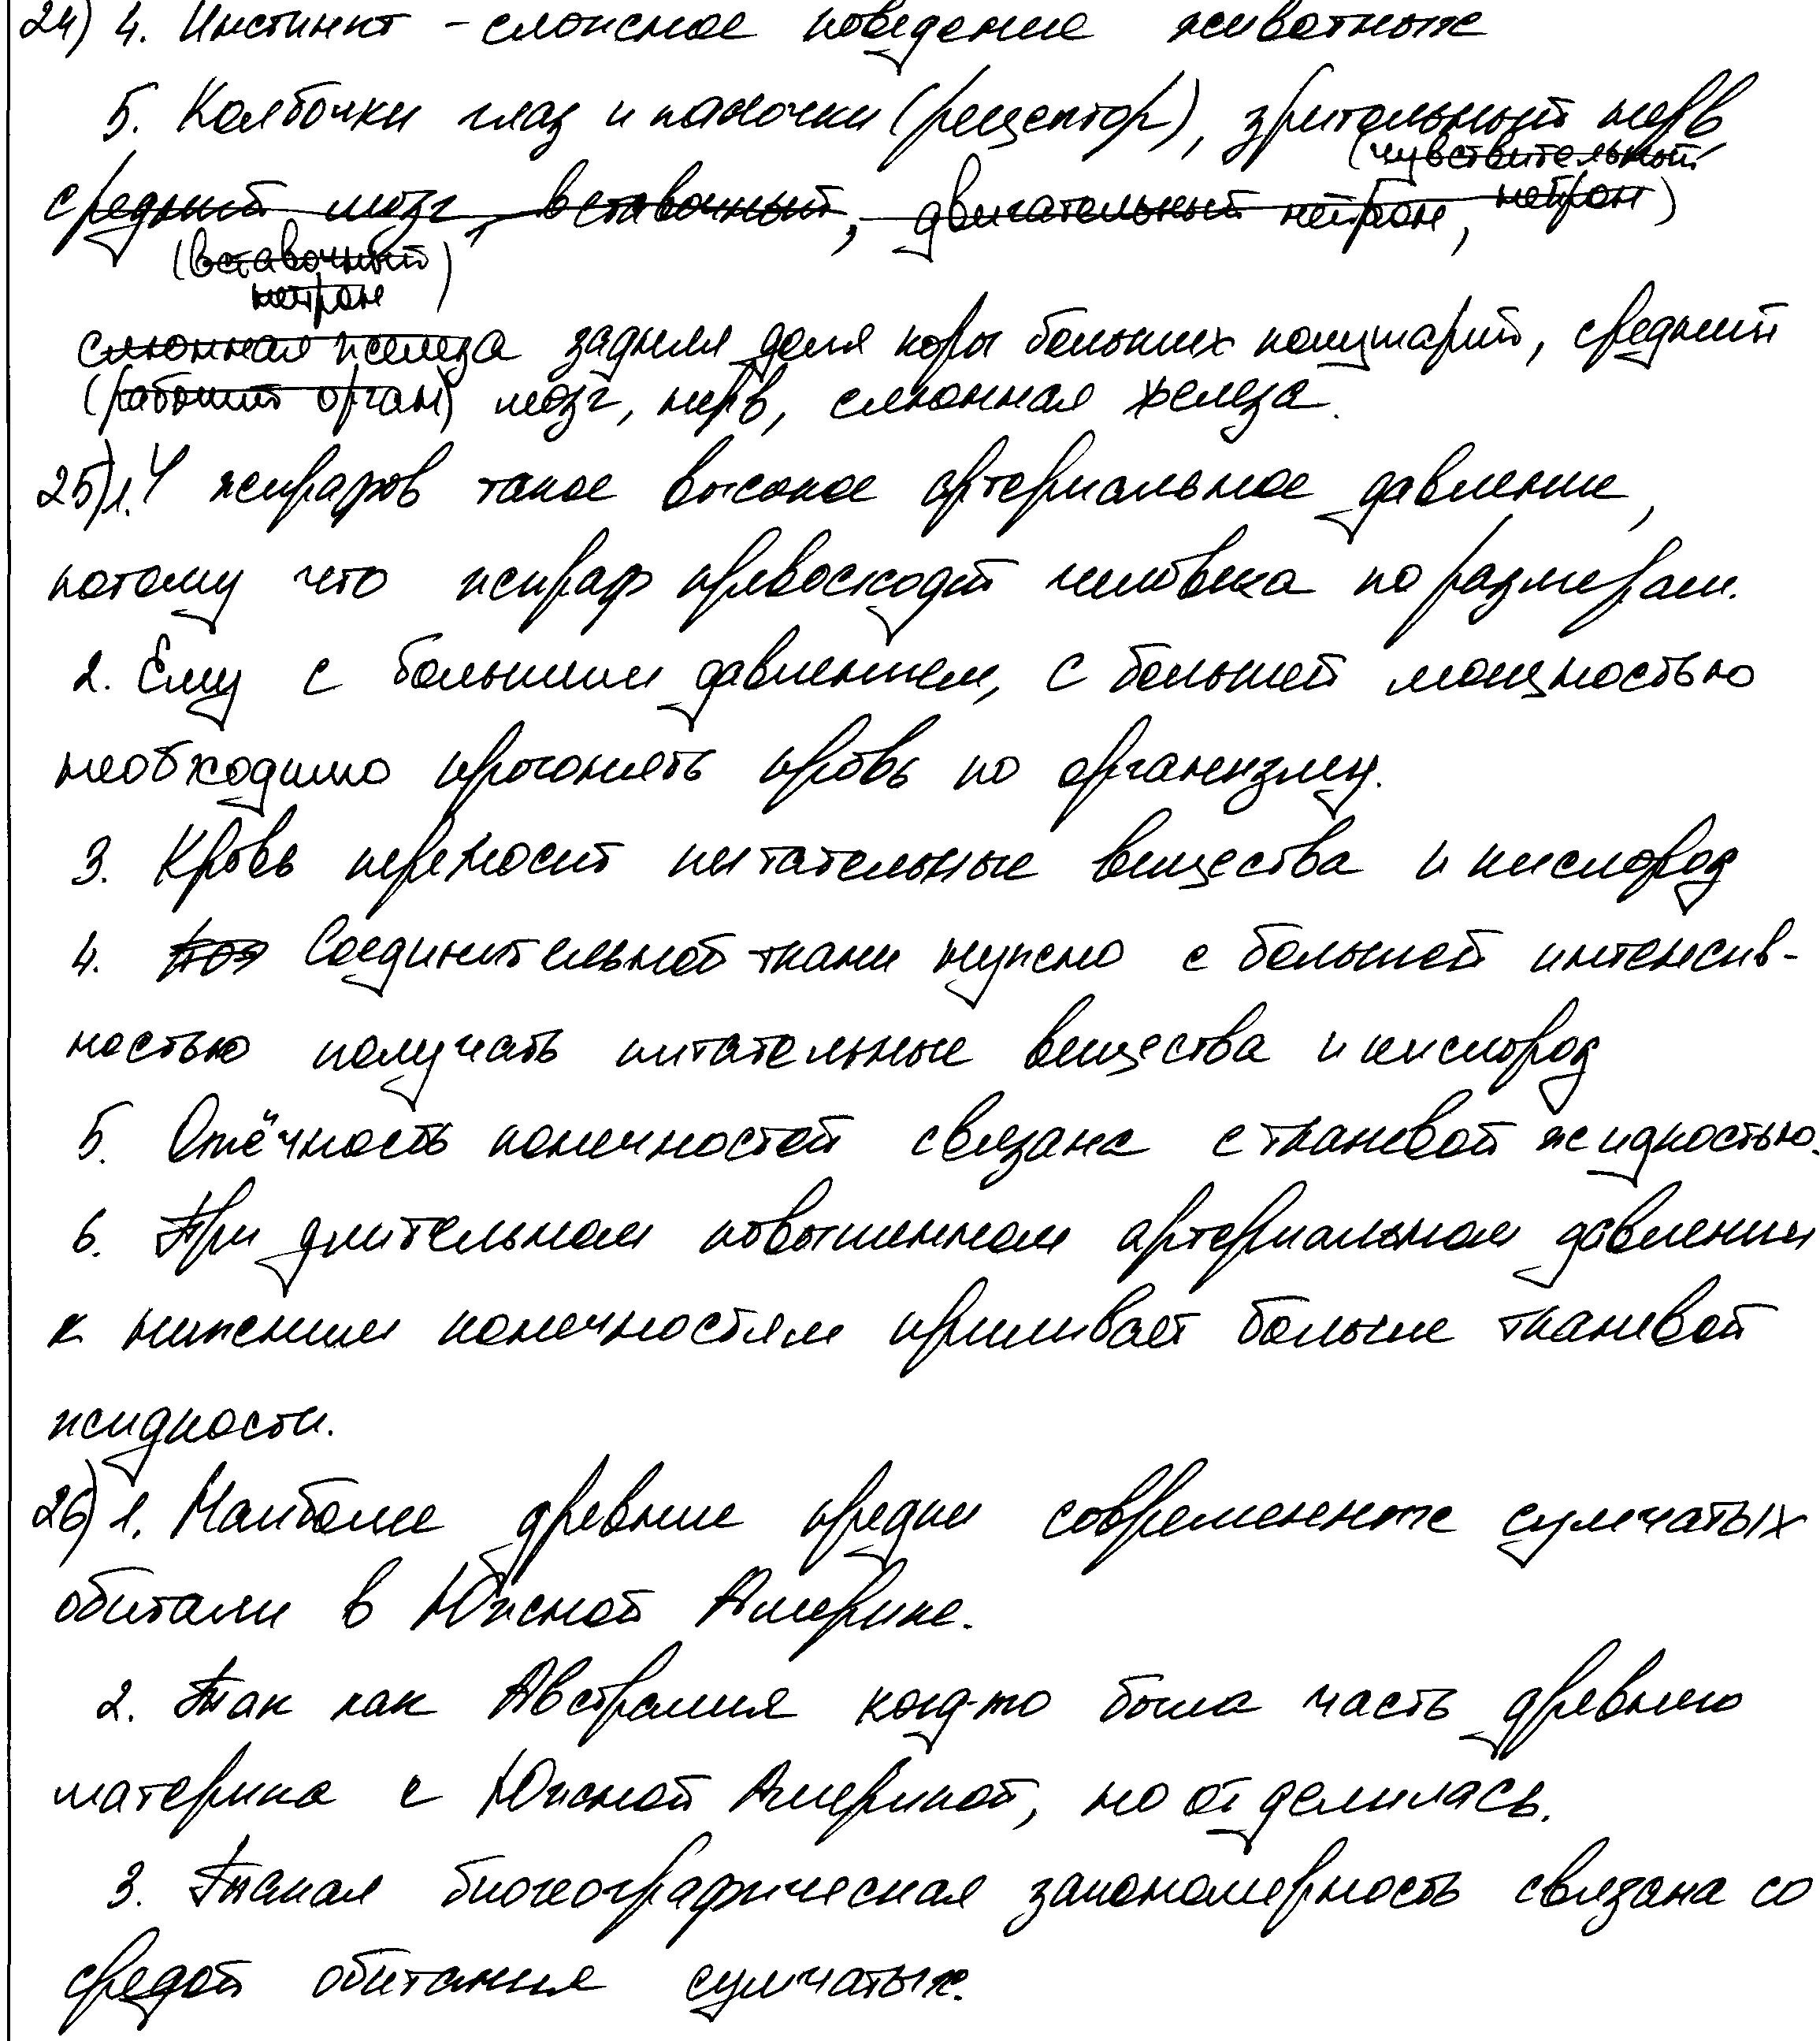 24) 4. Инстинкт – сложное поведение животных
5. Колбочки глаз и палочки (рецептор), зрительный нерв
(чувствительный
средний мозг, вставочный, двигательный нейрон, нейрон)
(вставочный)
нейрон
слюнная железа задняя доля коры больших полушарий, средний
(рабочий орган) мозг, нерв, слюнная железа.
25) 1. У жирафов такое высокое артериальное давление,
потому что жираф превосходит человека по размерам.
2. Ему с большим давлением, с большей мощностью
необходимо прогонять кровь по организму.
3. Кровь переносит питательные вещества и кислород
4. Соединительной ткани нужно с большей интенсив-
ностью получать питательные вещества и кислород
5. Отёчность конечностей связана с тканевой жидностью.
6. При длительном повышенном артериальном давлении
к нижним конечностям приливает больше тканевой
жидкости.
26) 1. Наиболее древние предки современных сумчатых
обитали в Южной Америке.
2. Так как Австралия когд-то была часть древнего
материка с Южной Америкой, но отделилась.
3. Такая биогеографическая закономерность связана со
средой обитания сумчатых.